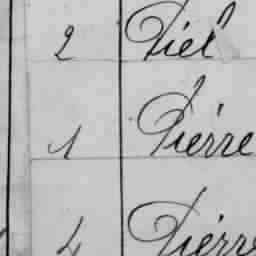 2 Diel
1 Pierre
4 Pierre